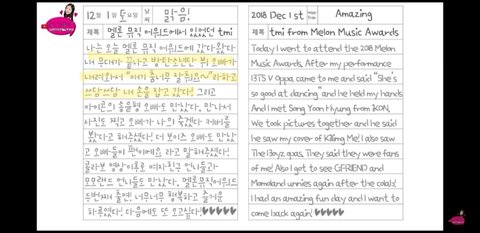 12월 1일 토요일 날씨 맑음!
제목 멜론 뮤직 어워드에서 있었던 tmi
나는 오늘 멜론 뮤직 어워드에 갔다왔다.
내 무대가 끝나고 방탄소년단 뷔 오빠가
내려와서 "애기 춤 너무 잘춰요~"라하고
쓰담쓰담 내 손을 잡고 갔다! 그리고
아이콘의 송윤형 오빠도 만났다. 만나서
사진도 찍고 오빠가 나의 죽겠다 커버를
봤다고 해주셨다! 더 보이즈 오빠도 만났
고 오빠들이 팬이에요 라고 말해주셨다!
콜라보 영상이후로 여자친구 언니들과
모모랜드 언니들도 만났다. 멜론뮤직어워드
두번째 출연, 너무너무 행복하고 즐거운
하루였다! 다음에도 또 오고싶다! ♥♥♥♥♥
2018 Dec 1st Amazing
제목 tmi from Melon Music Awards
Today I went to attend the 2018 Melon
Music Awards. After my performance
BTS V oppa came to me and said "She's
so good at dancing" and he held my hands
And I met Song Yoon Hyung from iKON,
We took pictures together and he said
he saw my cover of Killing Me! I also saw
The Boyz oppas. They said they were fans
of me! Also I got to see GFRIEND and
Momoland unnies again after the collab!
I had an amazing fun day and I want to
come back again! ♥♥♥♥♥